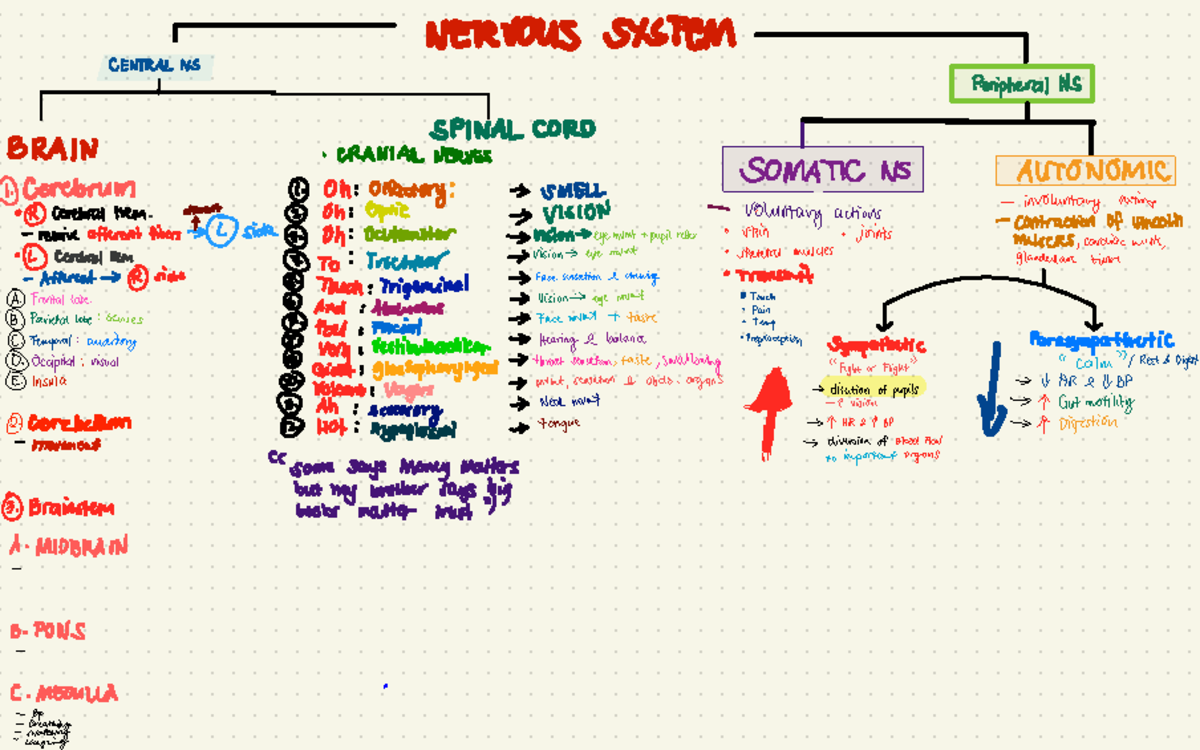 NERVOUS SYSTEM
CENTRAL NS
BRAIN
1. Cerebrum
• R Cerebral Hem.
- receive afferent fibers → L side
• L Cerebral Hem
- Afferent → R side
A Frontal lobe
B Parietal lobe : senses
C Temporal : auditory
D Occipital : visual
E Insula
2. Cerebellum
- movement
3. Brainstem
A. MIDBRAIN
-
B. PONS
-
C. MEDULLA
- BP
- Breathing
SPINAL CORD
• CRANIAL NERVES
Oh : Olfactory : → SMELL
Oh : Optic → VISION
Oh : Oculomotor → Vision → eye mvmt + pupil
To : Trochlear → Vision → eye mvmt
Touch : Trigeminal → Face sensation &
And : → Vision → eye mvmt
Feel : Facial → Face mvmt + taste
Very : → Hearing & balance
: → sensation, taste, swallowing
: Vagus → mvmt, sensation & : organs
Ah : → Neck mvmt
Hot : → Tongue
" Some Says Money Matters
but my brother says big
matter most "
Peripheral NS
SOMATIC NS
- Voluntary actions
• Skin • joints
• skeletal muscles
• Transmit
• Touch
• Pain
• Temp
• Proprioception
AUTONOMIC
- involuntary
- Contraction of smooth
muscles, cardiac
glandular
Sympathetic
" Fight or Flight "
→ dilation of pupils
- ↑ vision
→ ↑ HR & ↑ BP
→ diversion of Blood flow
to important organs
Parasympathetic
" Calm " / Rest & Digest
→ ↓ HR & ↓ BP
→ ↑ Gut motility
→ ↑ Digestion